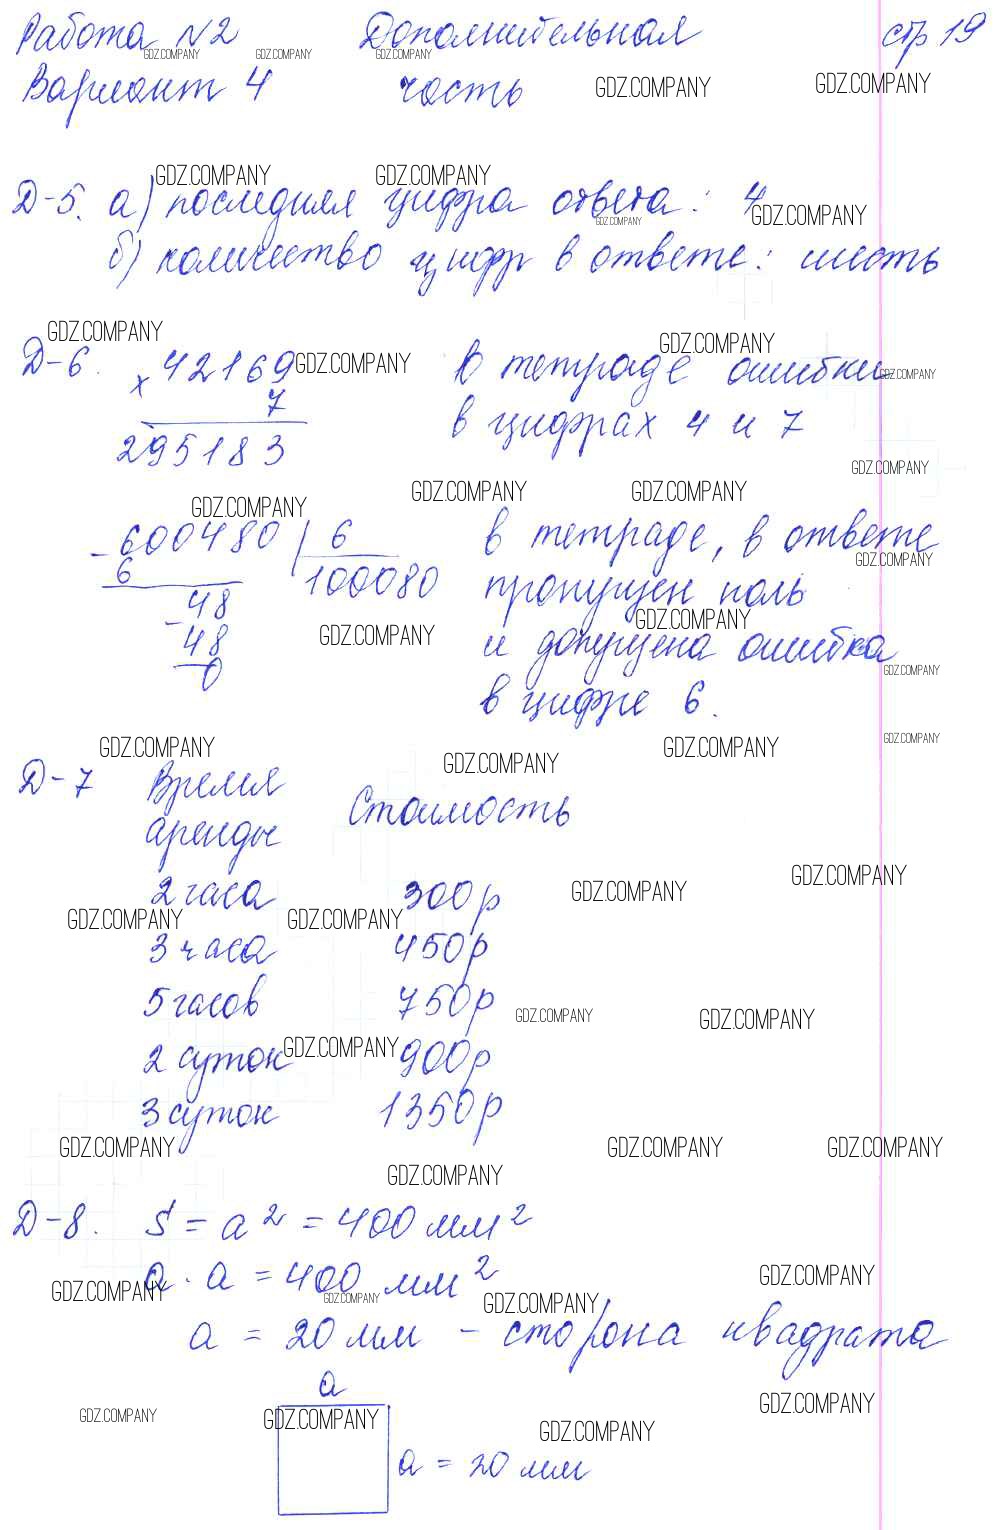 Работа №2 Дополнительная стр 19
Вариант 4 часть
Д-5. а) последняя цифра ответа: 4
б) количество цифр в ответе: шесть
Д-6. х 42169 В тетраде ошибки
7 в цифрах 4 и 7
295183
- 600480 | 6 в тетраде, в ответе
6 100080 пропущен ноль
- 48 и допущена ошибка
48 в цифре 6.
0
Д-7 Время Стоимость
аренды
2 часа 300р
3 часа 450р
5 часов 750р
2 суток 900р
3 суток 1350р
Д-8. S = a² = 400 мм²
a · a = 400 мм²
a = 20 мм - сторона квадрата
a
a = 20 мм
GDZ.COMPANY